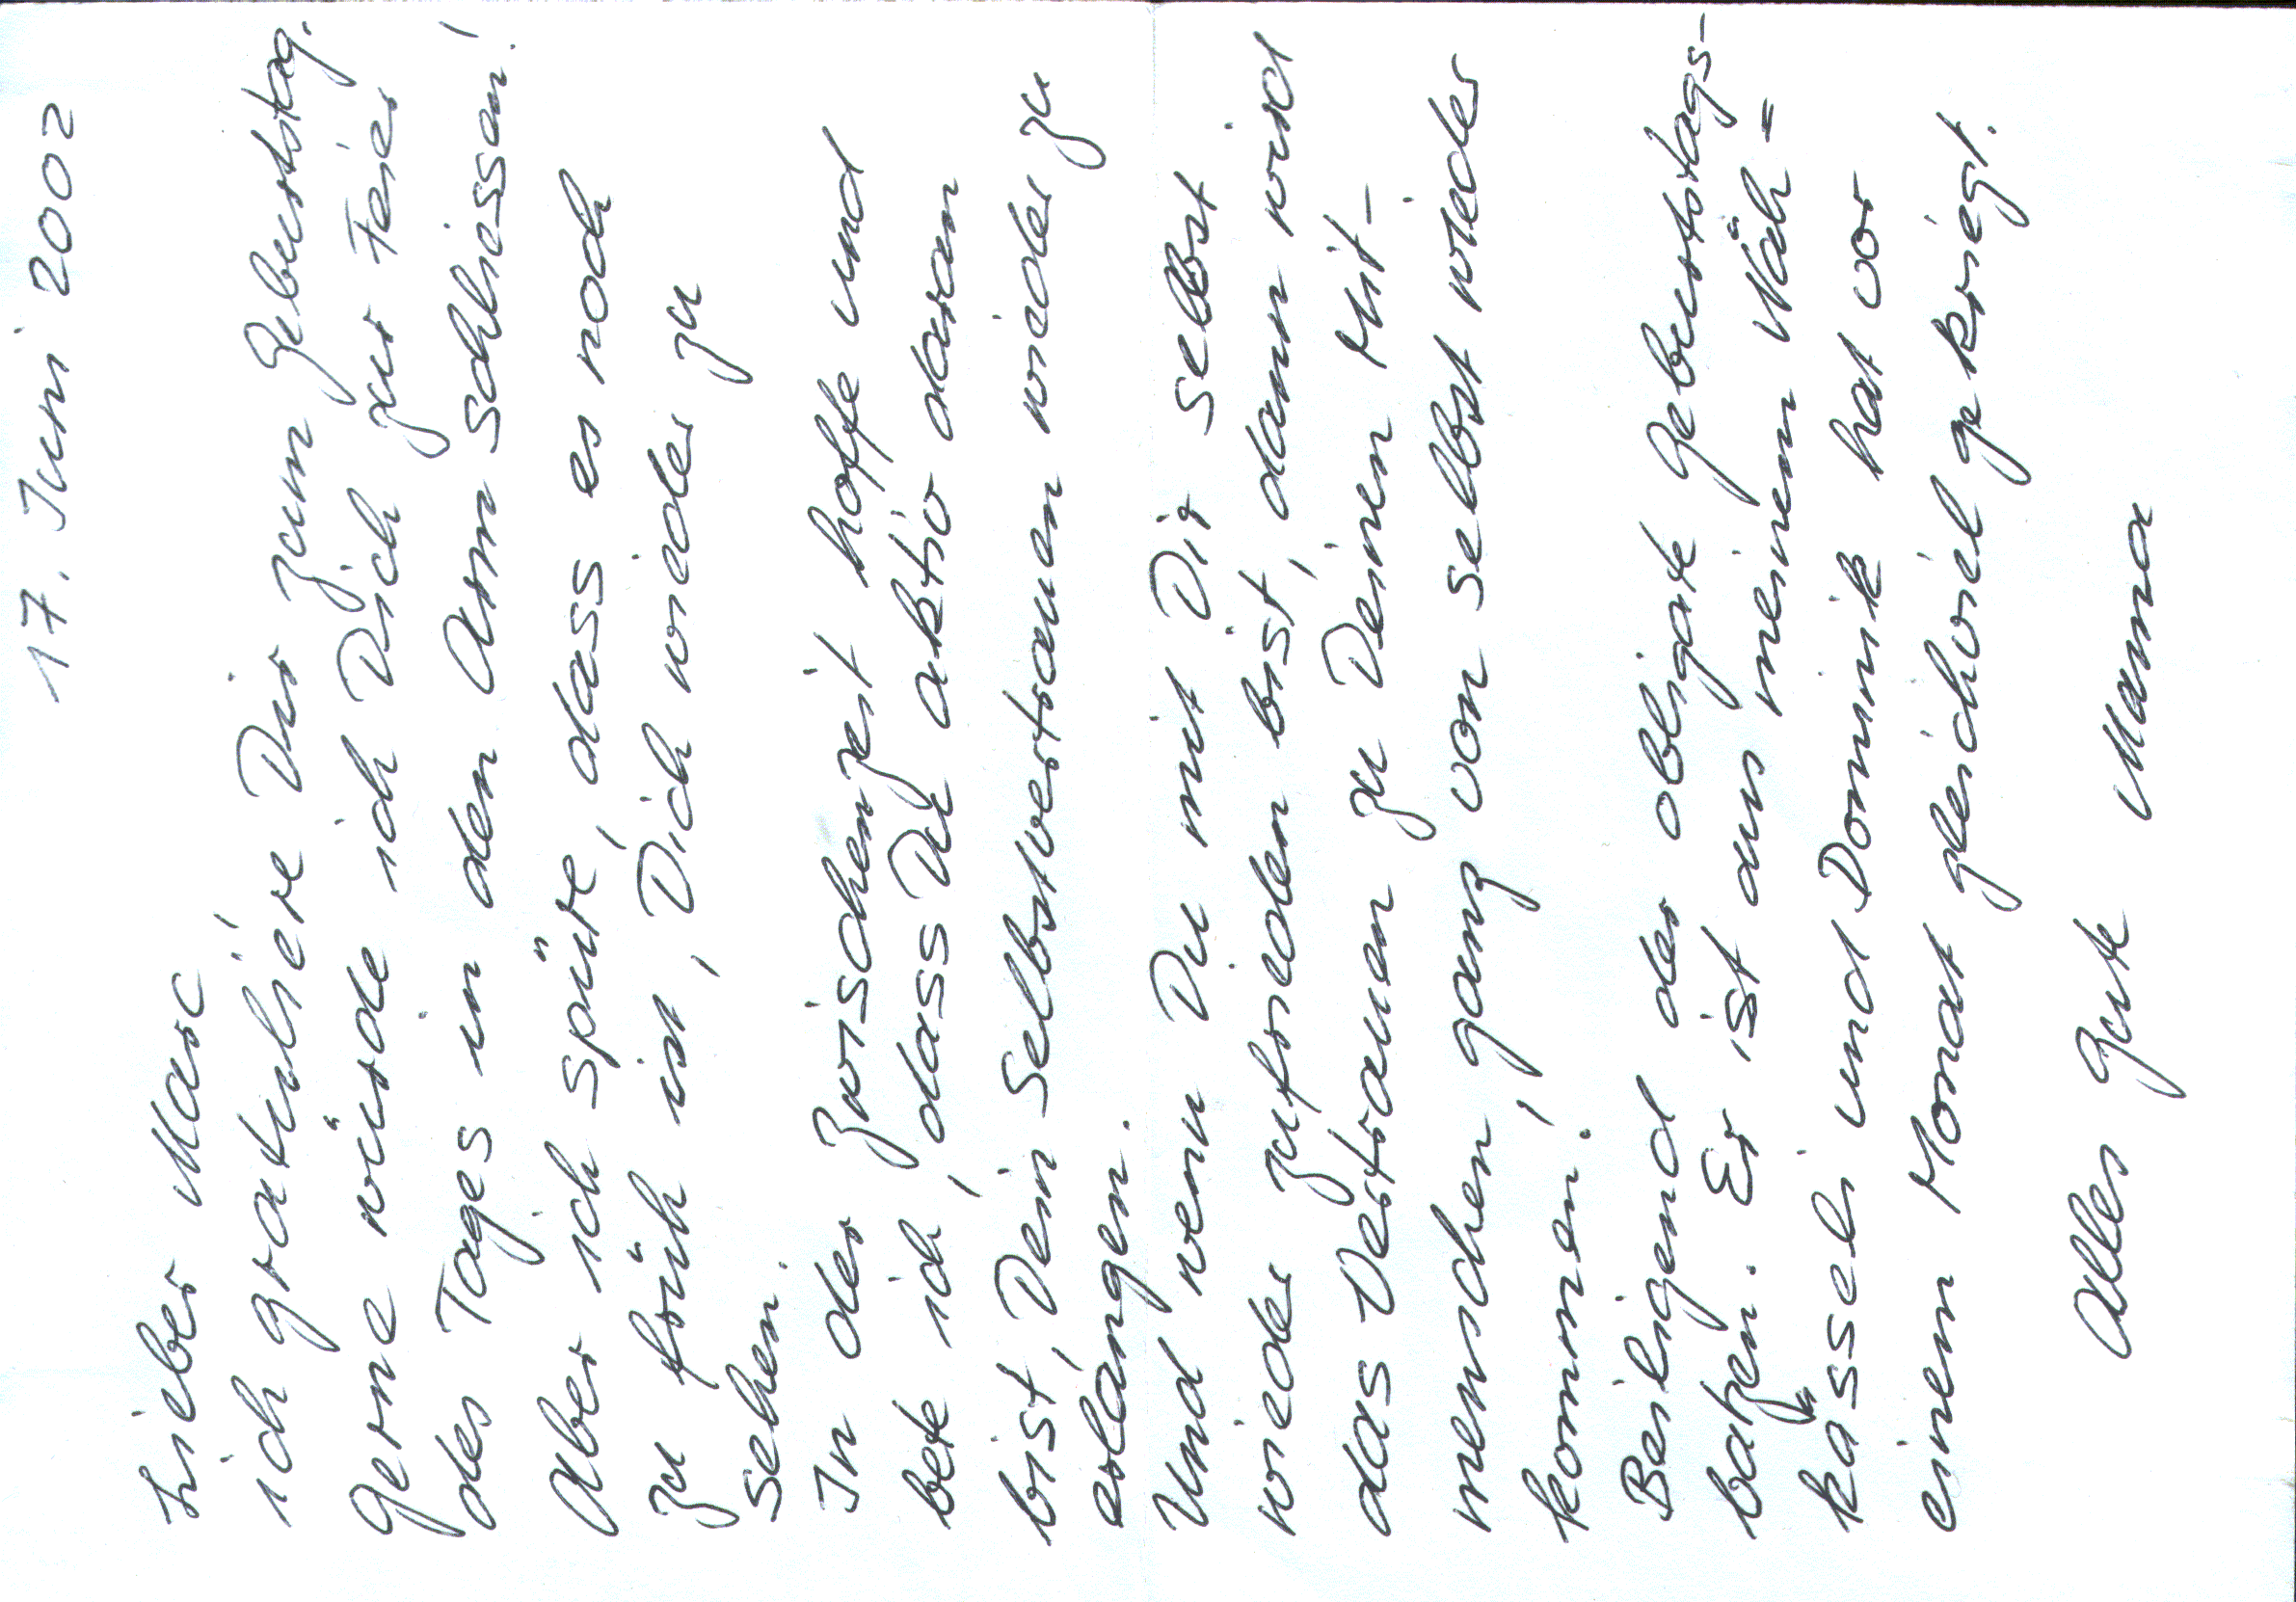 17. Juni 2002
Lieber Marc
ich gratuliere Dir zum Geburtstag.
Gerne würde ich Dich zur Feier
des Tages in den Arm schliessen!
Aber ich spüre, dass es noch
zu früh ist, Dich wieder zu
sehen.
In der Zwischenzeit hoffe und
bete ich, dass Du aktiv daran
bist, Dein Selbstvertrauen wieder zu
erlangen.
Und wenn Du mit Dir selbst
wieder zufrieden bist, dann wird
das Vertrauen zu Deinen Mit-
menschen, ganz von selbst wieder
kommen!
Beiligend der obligate Geburtstags-
batzen. Er ist aus meinem Näh=
kässeli und Dominik hat vor
einem Monat gleichviel gekriegt.
Alles Gute Mama